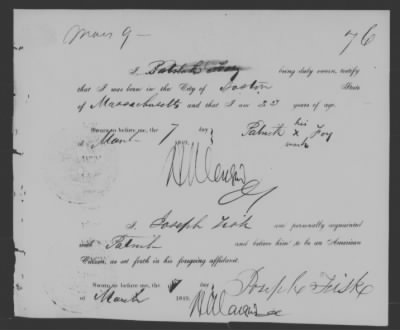 Mars 9 —
76
I, Patrick Foy being duly sworn, testify
that I was born in the City of Boston State
of Massachusetts and that I am 22 years of age.
Sworn to before me, the 7 day
of March
his
Patrick x Foy
mark
I, Joseph Fisk am personally acquainted
with Patrick and believe him to be an American
Citizen, as set forth in his foregoing affidavit.
Sworn to before me, the day
of March
Joseph Fisk